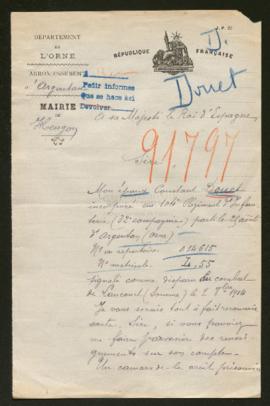 DÉPARTEMENT
DE
L'ORNE
ARRONDISSEMENT
d'Argentan
MAIRIE
DE
RÉPUBLIQUE FRANÇAISE
D.
Douet
Pedir informes
Que se hace así
Devolver
A sa Majesté le Roi d'Espagne,
91797
Sire,
Mon époux Constant Douet
incorporé au 104e Régiment d'Infan
terie (32e compagnie) parti le 25 août
d'Argentan (Orne)
No au répertoire 014615
No matricule
signalé comme disparu du combat
de (Somme) le 1914
Je vous serais tout à fait reconnais
sante, Sire, si vous pouviez
me faire parvenir des rensei
gnements sur son compte.
Un camarade le croit prisonnier